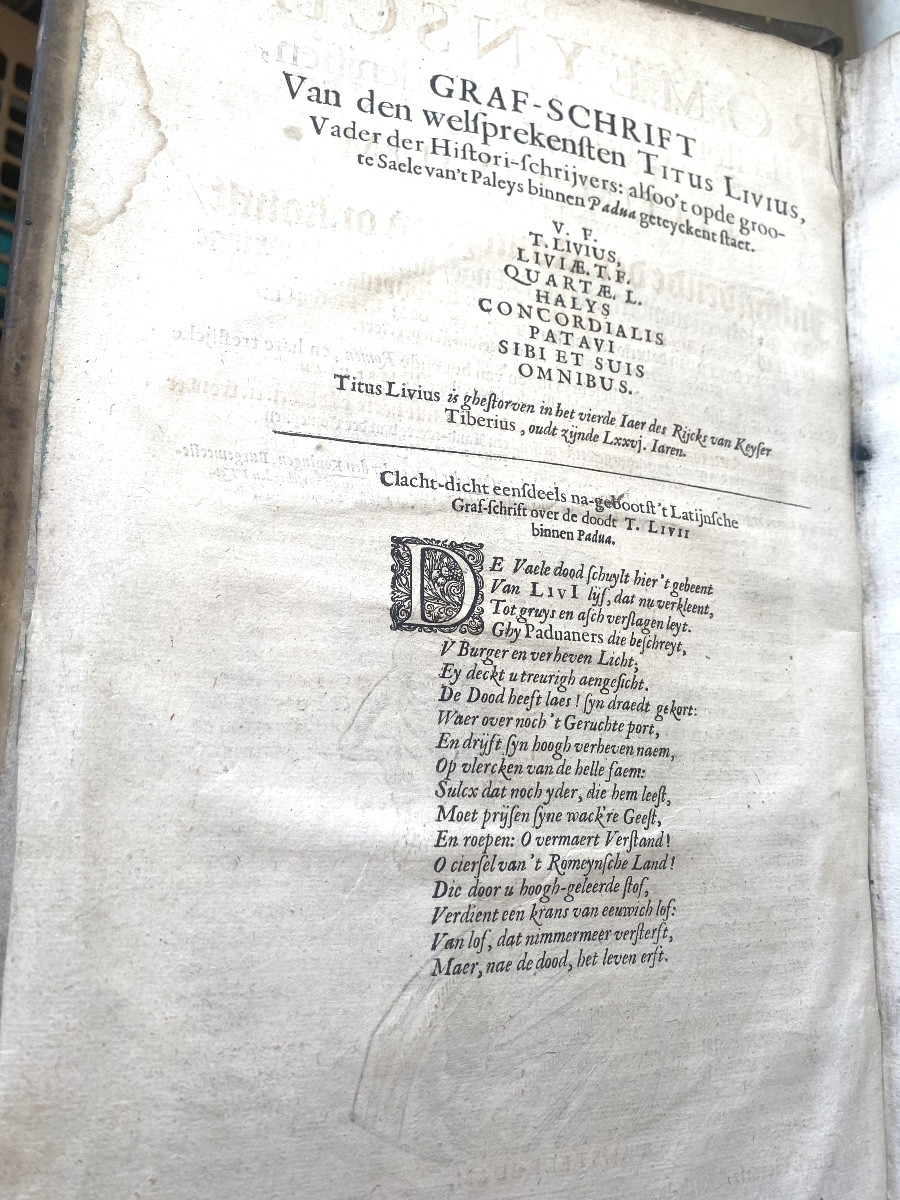 GRAF-SCHRIFT
Van den welſprekenſten TITUS LIVIUS,
Vader der Hiſtori-ſchrijvers: alſoo't opde groo-
te Saele van't Paleys binnen Padua geteyckent ſtaet.
V. F.
T. LIVIUS,
LIVIÆ. T. F.
QUARTÆ. L.
HALYS
CONCORDIALIS
PATAVI
SIBI ET SUIS
OMNIBUS.
Titus Livius is gheſtorven in het vierde Iaer des Rijcks van Keyſer
Tiberius, oudt zijnde Lxxvj. Iaren.
Clacht-dicht eenſdeels na-gebootſt 't Latijnſche
Graf-ſchrift over de doodt T. LIVII
binnen Padua.
DE Vaele dood ſchuylt hier 't gebeent
Van LIVI lijf, dat nu verkleent,
Tot gruys en aſch verſlagen leyt.
Ghy Paduaners die beſchreyt,
V Burger en verheven Licht;
Ey deckt u treurigh aengeſicht.
De Dood heeft laes! ſyn draedt gekort:
Waer over noch 't Geruchte port,
En drijft ſyn hoogh verheven naem,
Op vlercken van de helle faem:
Sulcx dat noch yder, die hem leeſt,
Moet prijſen ſyne wack're Geeſt,
En roepen: O vermaert Verſtand!
O cierſel van 't Romeynſche Land!
Die door u hoogh-geleerde ſtof,
Verdient een krans van eeuwich lof:
Van lof, dat nimmermeer verſterft,
Maer, nae de dood, het leven erft.